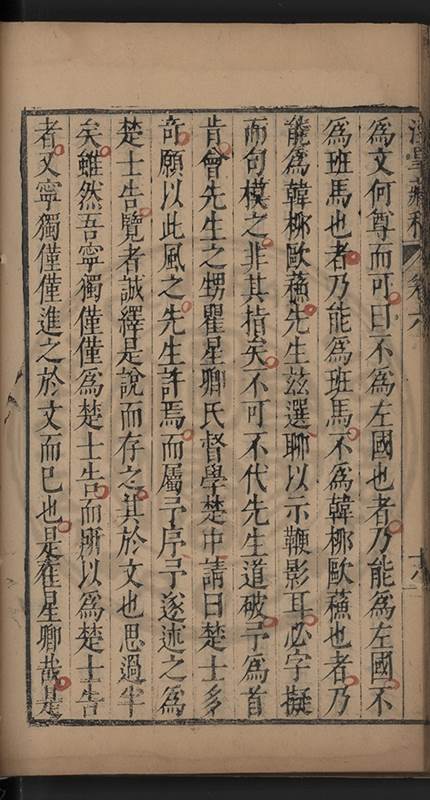 爲文何尊而可曰不爲左國也者乃能爲左國不
爲班馬也者乃能爲班馬不爲韓柳歐蘇也者乃
能爲韓柳歐蘇先生茲選聊以示鞭影耳必字擬
而句模之非其指矣不可不代先生道破予爲首
肯會先生之甥瞿星卿氏督學楚中請曰楚士多
奇願以此風之先生許焉而屬予序予遂述之爲
楚士告覽者誠繹是說而存之其於文也思過半
矣雖然吾寧獨僅僅爲楚士告而所以爲楚士告
者又寧獨僅僅進之於文而已也是在星卿哉是